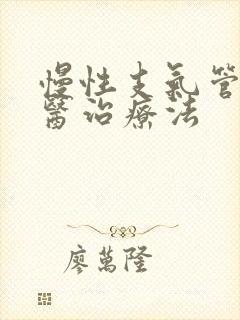 慢性支氣管
醫治療法
廖萬隆